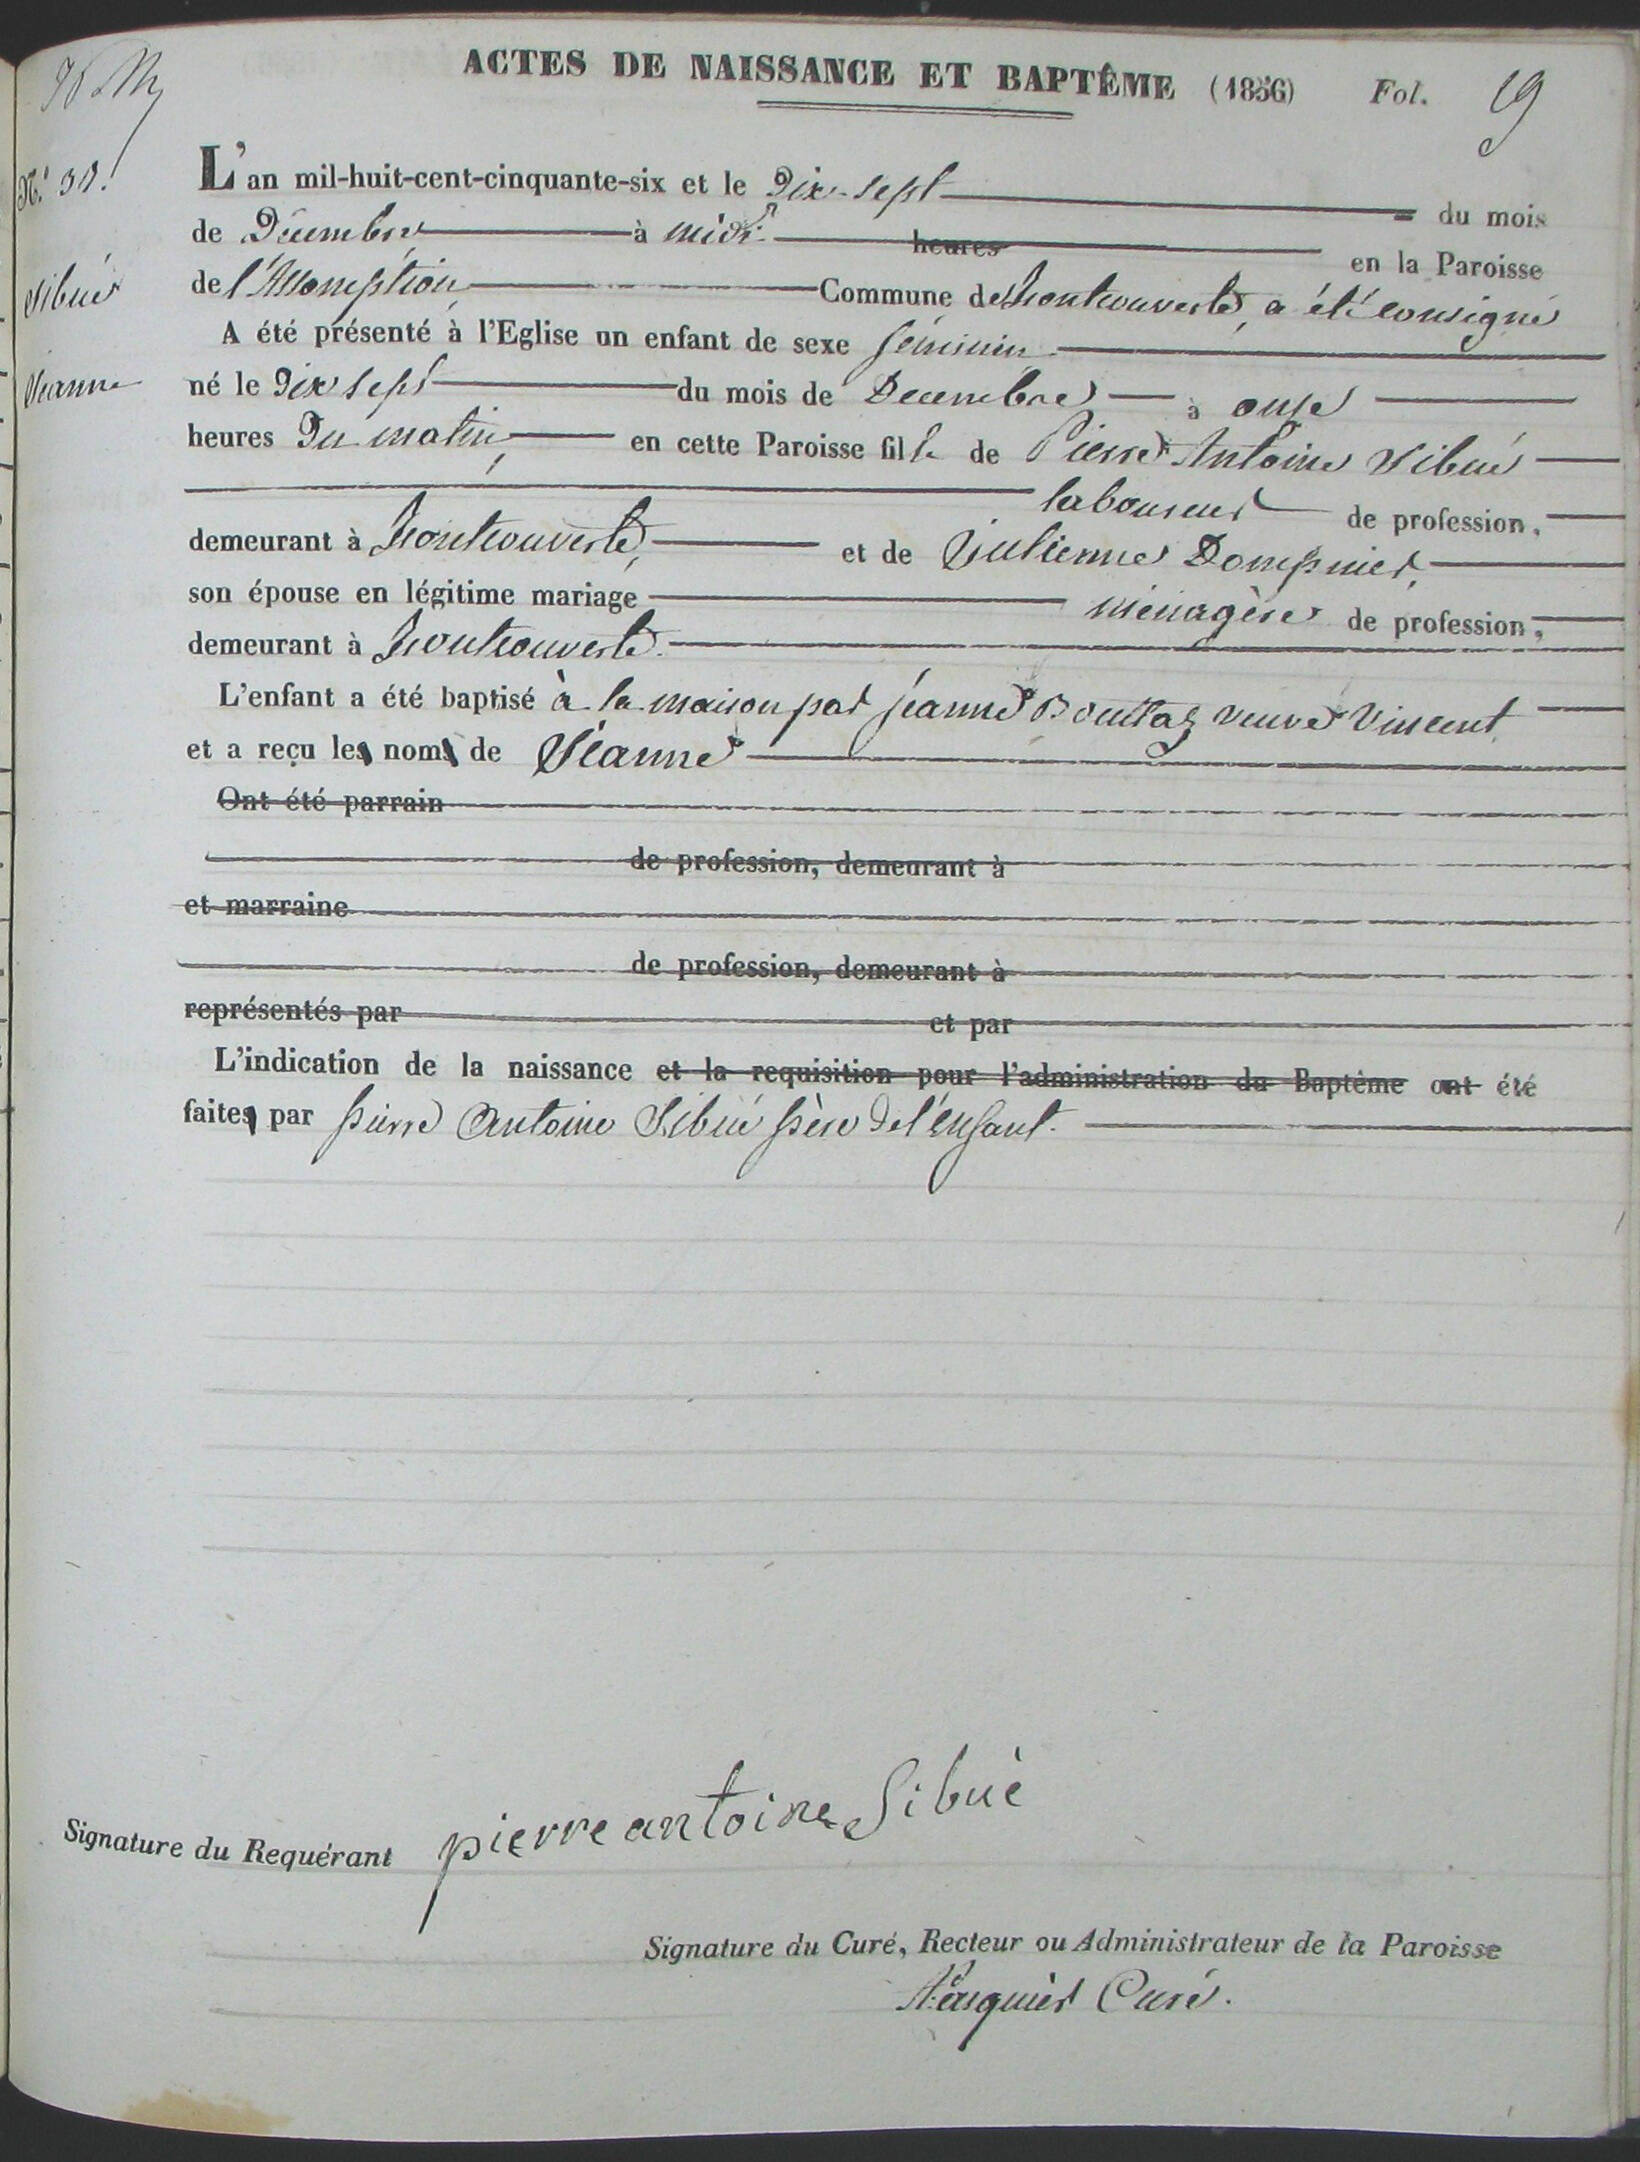 ACTES DE NAISSANCE ET BAPTÊME (1856) Fol. 19
L'an mil-huit-cent-cinquante-six et le Dix-sept du mois
de Décembre à midi heures en la Paroisse
de l'Assomption Commune de Fontcouverte, a été consigné
A été présenté à l'Eglise un enfant de sexe féminin
né le Dix sept du mois de Decembre à onze
heures Du matin, en cette Paroisse fille de Pierre Antoine Sibué
laboureur de profession,
demeurant à Fontcouverte, et de Julienne Dompnier,
son épouse en légitime mariage ménagère de profession,
demeurant à Fontcouverte.
L'enfant a été baptisé à la maison par jeanne Bouttaz veuve Vincent
et a reçu les noms de Jeanne
Ont été parrain
de profession, demeurant à
et marraine
de profession, demeurant à
représentés par et par
L'indication de la naissance et la requisition pour l'administration du Baptême ont été
faites par pierre Antoine Sibué père de l'enfant.
N.°
Sibué
Jeanne
Signature du Requérant pierre antoine Sibué
Signature du Curé, Recteur ou Administrateur de la Paroisse
Curé.